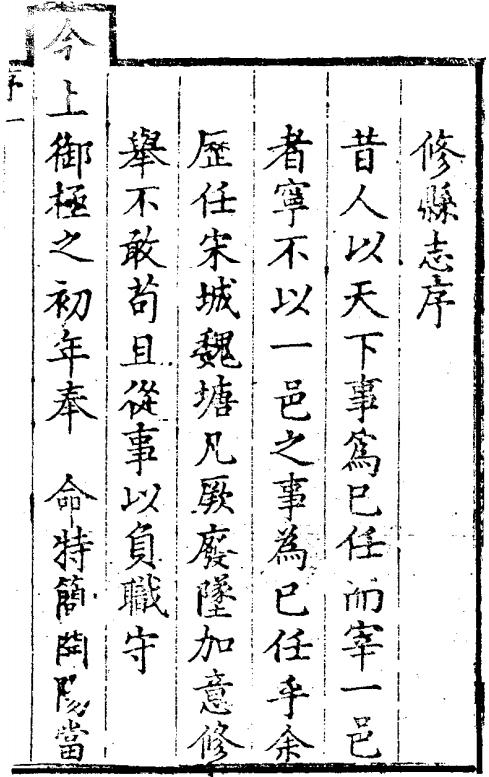 修縣志序
昔人以天下事為已任而宰一邑
者寧不以一邑之事為已任乎余
歷任宋城魏塘凡厥廢墜加意修
舉不敢苟且從事以負職守
今上御極之初年奉 命特簡開陽當
序 一